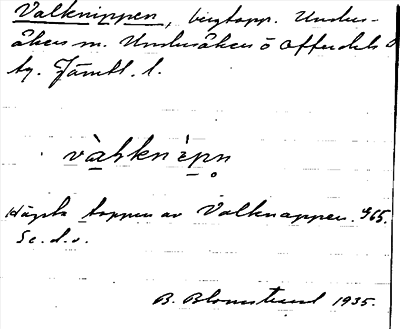 Valknippen, bergtopp. Unders-
åkers m. Undersåkers o Offerdals
tg. Jämtl. l.
vàlknèpn̥
Högsta toppen av Valknappen. 965.
Se. d. o.
B. Blomstrand 1935.